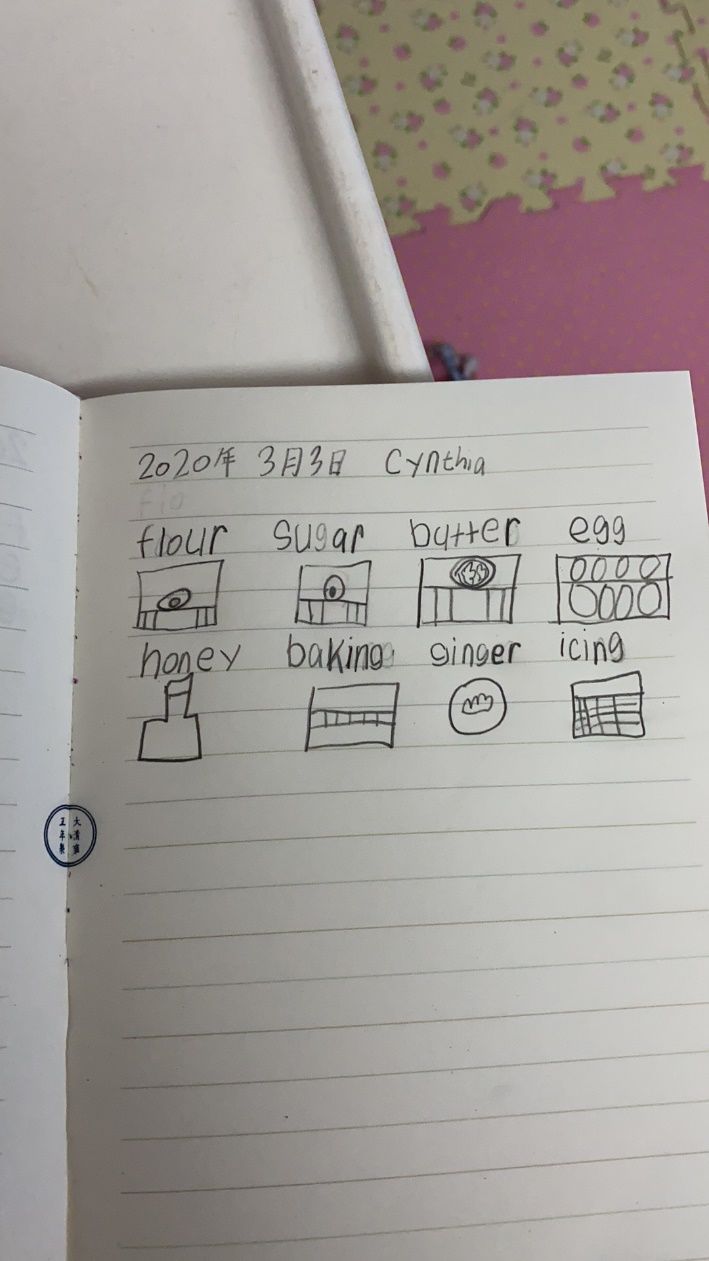 2020年 3月3日 Cynthia
fio
flour sugar butter egg
honey baking ginger icing
大清雍
正年製